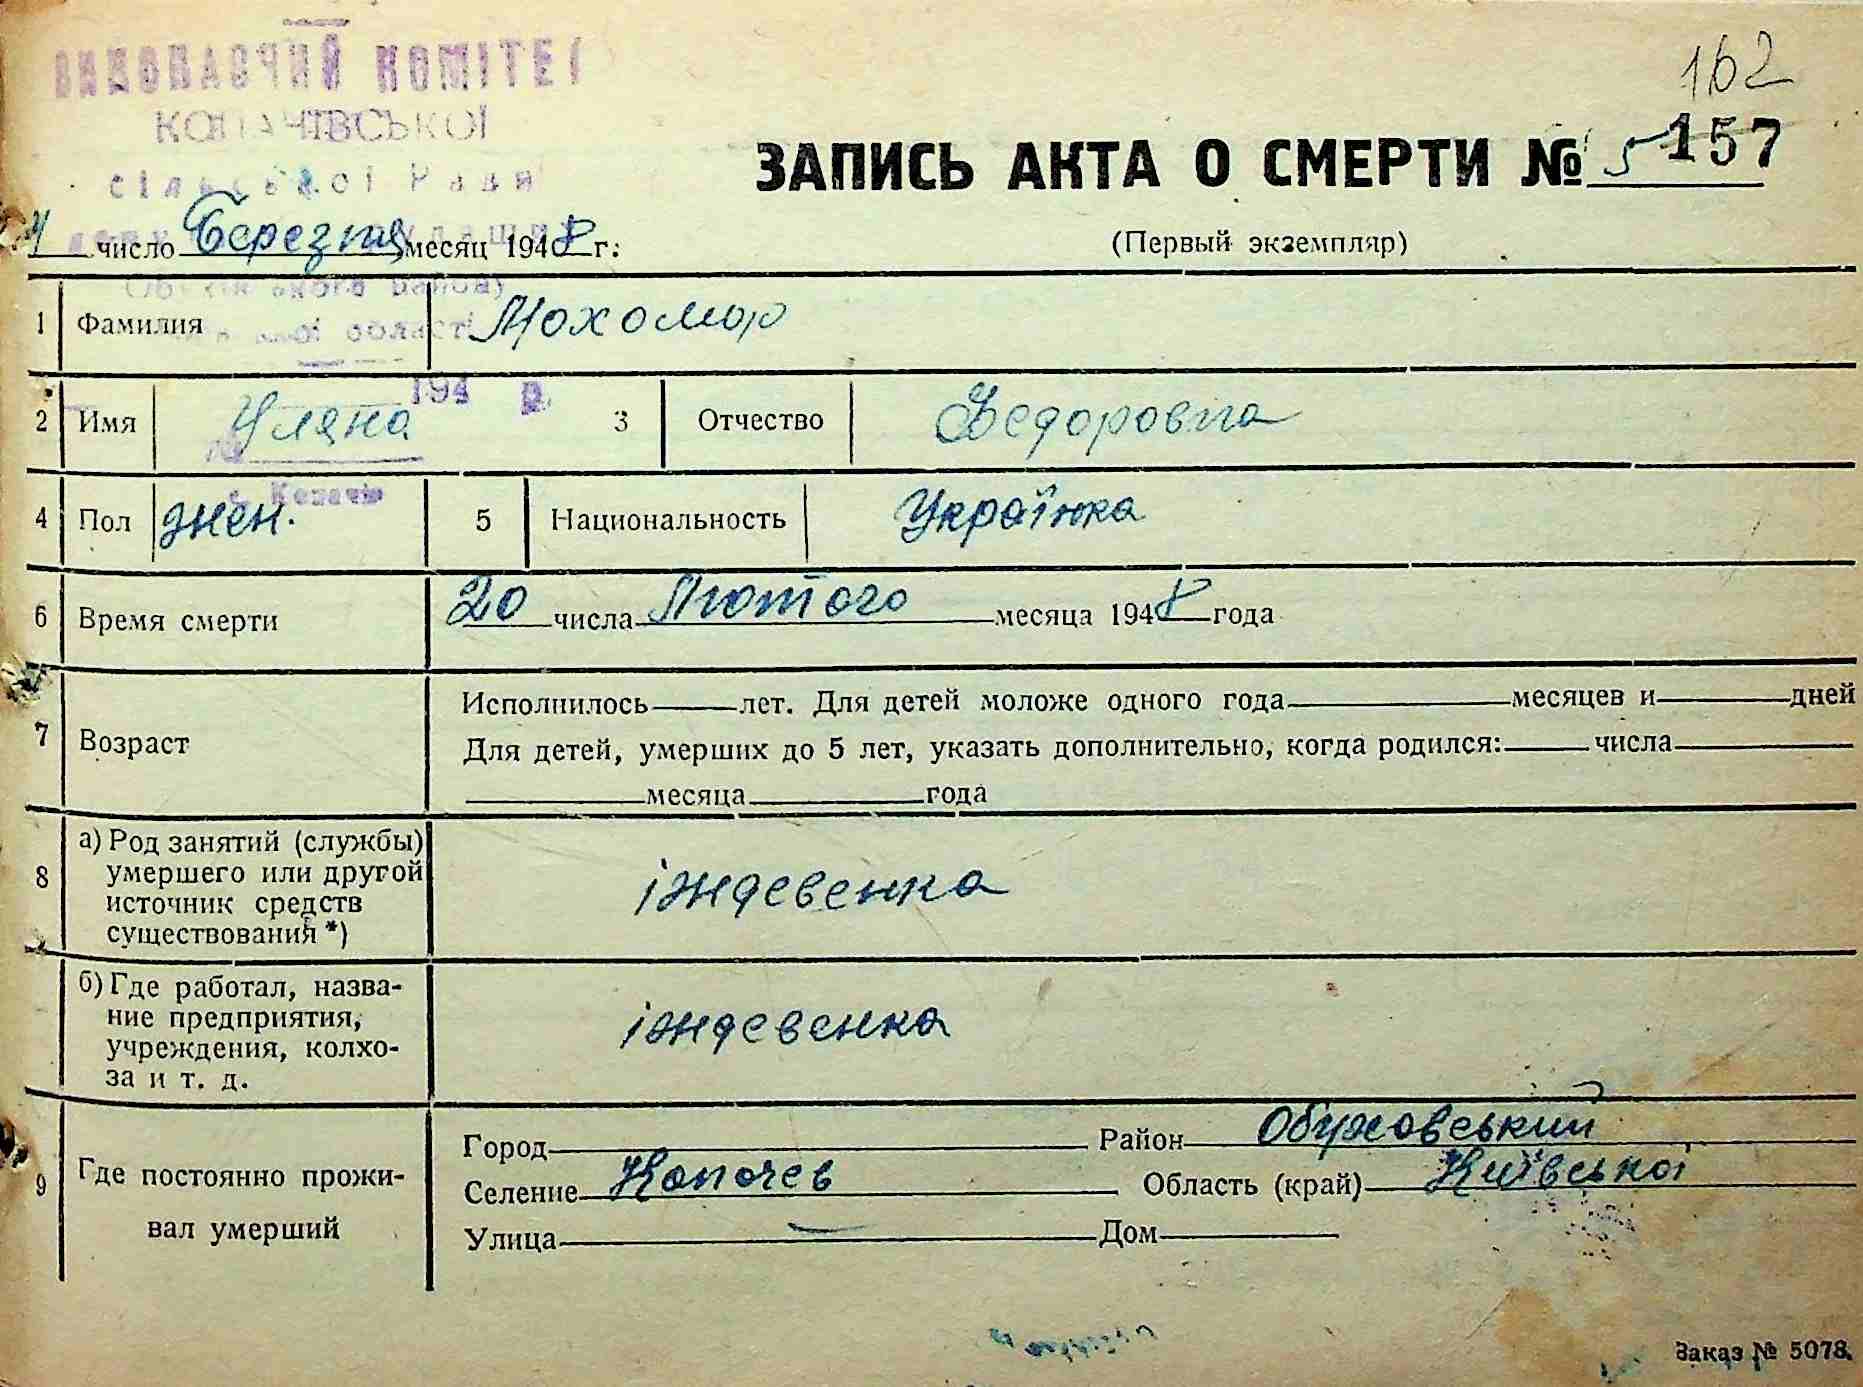 ВИКОНАВЧИЙ КОМІТЕТ
КОПАЧІВСЬКОЇ
сільської Ради
162
ЗАПИСЬ АКТА О СМЕРТИ № 5 157
(Первый экземпляр)
4 число Березня месяц 1948 г.:
області
194 р.
1 Фамилия Мохомор
2 Имя Уляна 3 Отчество Федоровна
4 Пол жен. 5 Национальность Українка
6 Время смерти 20 числа Лютого месяца 1948 года
7 Возраст Исполнилось лет. Для детей моложе одного года месяцев и дней
Для детей, умерших до 5 лет, указать дополнительно, когда родился: числа
месяца года
8 а) Род занятий (службы) умершего или другой источник средств существования *) іждевенка
б) Где работал, название предприятия, учреждения, колхоза и т. д. іждевенка
9 Где постоянно проживал умерший
Город Район Обуховський
Селение Копачев Область (край) Київської
Улица — Дом
Заказ № 5078.